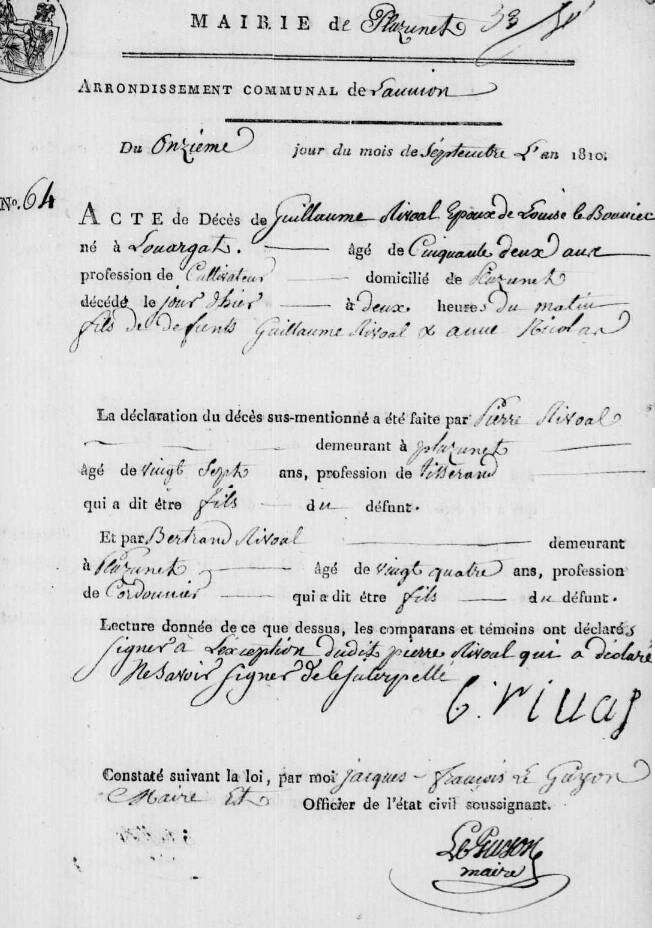 MAIRIE de Plazunet 53
ARRONDISSEMENT COMMUNAL de Lannion
Du Onzieme jour du mois de Septembre L'an 1810.
No. 64
ACTE de Décès de Guillaume Rivoal Epoux de Louise le Bonniec
né à Louargat. âgé de Cinquante deux ans
profession de Cultivateur domicilié de Plazunet
décédé le jour d'hier à deux. heures du matin
fils de defunts Guillaume Rivoal & anne Nicolas
La déclaration du décès sus-mentionné a été faite par Pierre Rivoal
demeurant à plazunet
âgé de vingt Sept ans, profession de tisserand
qui a dit être fils du défunt.
Et par Bertrand Rivoal demeurant
à Plazunet âgé de vingt quatre ans, profession
de Cordonnier qui a dit être fils du défunt.
Lecture donnée de ce que dessus, les comparans et témoins ont déclarés
signer à L'exception dudit pierre Rivoal qui a déclaré
Ne Savoir signer de le Interpellé
b. rivoal
Constaté suivant la loi, par moi jacques - françois Le Guyon
Maire Et Officier de l'état civil soussignant.
Le Guyon
maire